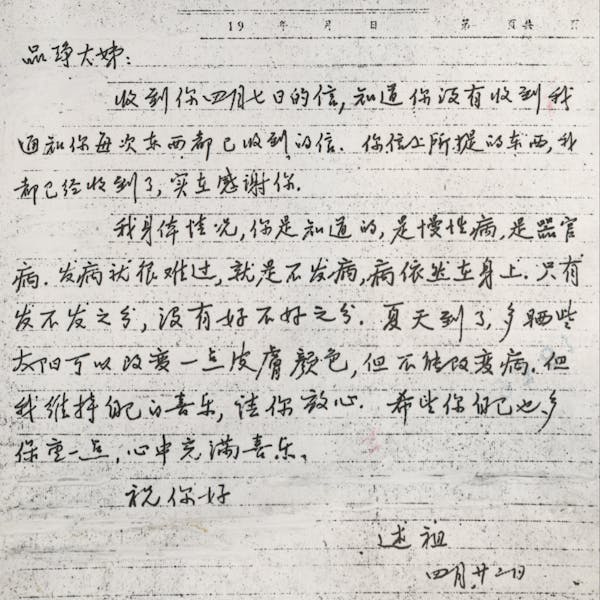 19 年 月 日 第 页共 页
品琤大姊：
收到你四月七日的信，知道你没有收到我
通知你每次东西都已收到的信. 你信上所提的东西，我
都已经收到了，实在感谢你.
我身体情况，你是知道的，是慢性病，是器官
病. 发病就很难过，就是不发病，病依然在身上. 只有
发不发之分，没有好不好之分. 夏天到了，多晒些
太阳可以改变一点皮膚颜色，但不能改变病. 但
我维持自己的喜乐，请你放心. 希望你自己也多
保重一点，心中充满喜乐。
祝你好
述祖
四月廿二日